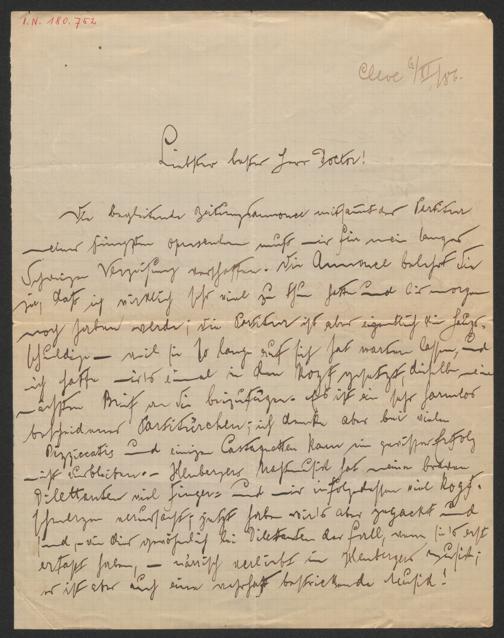 I.N. 180.752
Cleve 6/XI/86.
Liebster bester Herr Doctor!
Die begleitende Zeitungsannonce mitsamt der Partitur
meiner jüngsten muß mir für mein langes
Schweigen Verzeihung verschaffen. Die Annonce belehrt Sie
ja, daß ich wirklich sehr viel zu thun hatte und bis morgen
noch haben werde; die Partitur ist aber eigentlich die Haupt-
schuldige – weil sie so lang auf sich hat warten lassen, und
ich hatte mir's einmal in den Kopf gesetzt, dieselbe meinem
nächsten Brief an Sie beizufügen. Es ist ein sehr harmlos
bescheidenes Partitürchen; ich denke aber bei vielen
Pizzicatis und einigen Castagnetten kann ein gewisser Erfolg
nicht ausbleiben. – Heubergers hat meinen beiden
Dilettanten viel Finger- und mir infolgedessen viel Kopf-
schmerzen verursacht; jetzt haben wir's aber gepackt und
sind, wie dies gewöhnlich bei Dilettanten der Fall, wenn sie's erst
erfaßt haben, – närrisch verliebt in Heubergers Musik;
es ist aber auch eine wahrhaft bestrickende Musik!